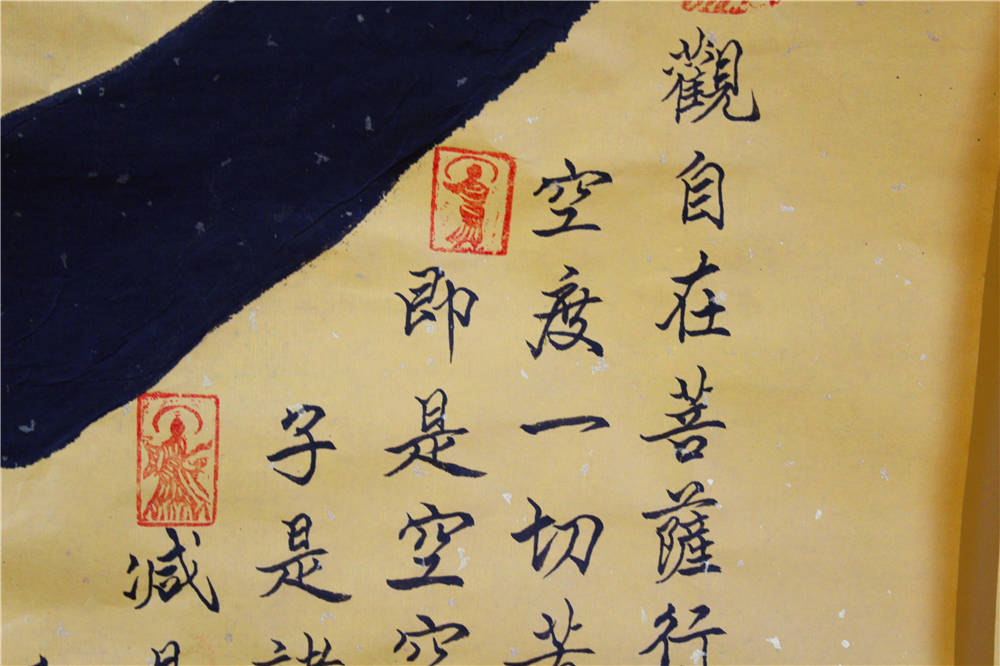 觀自在菩薩行
空度一切苦
即是空空
子是諸
減是